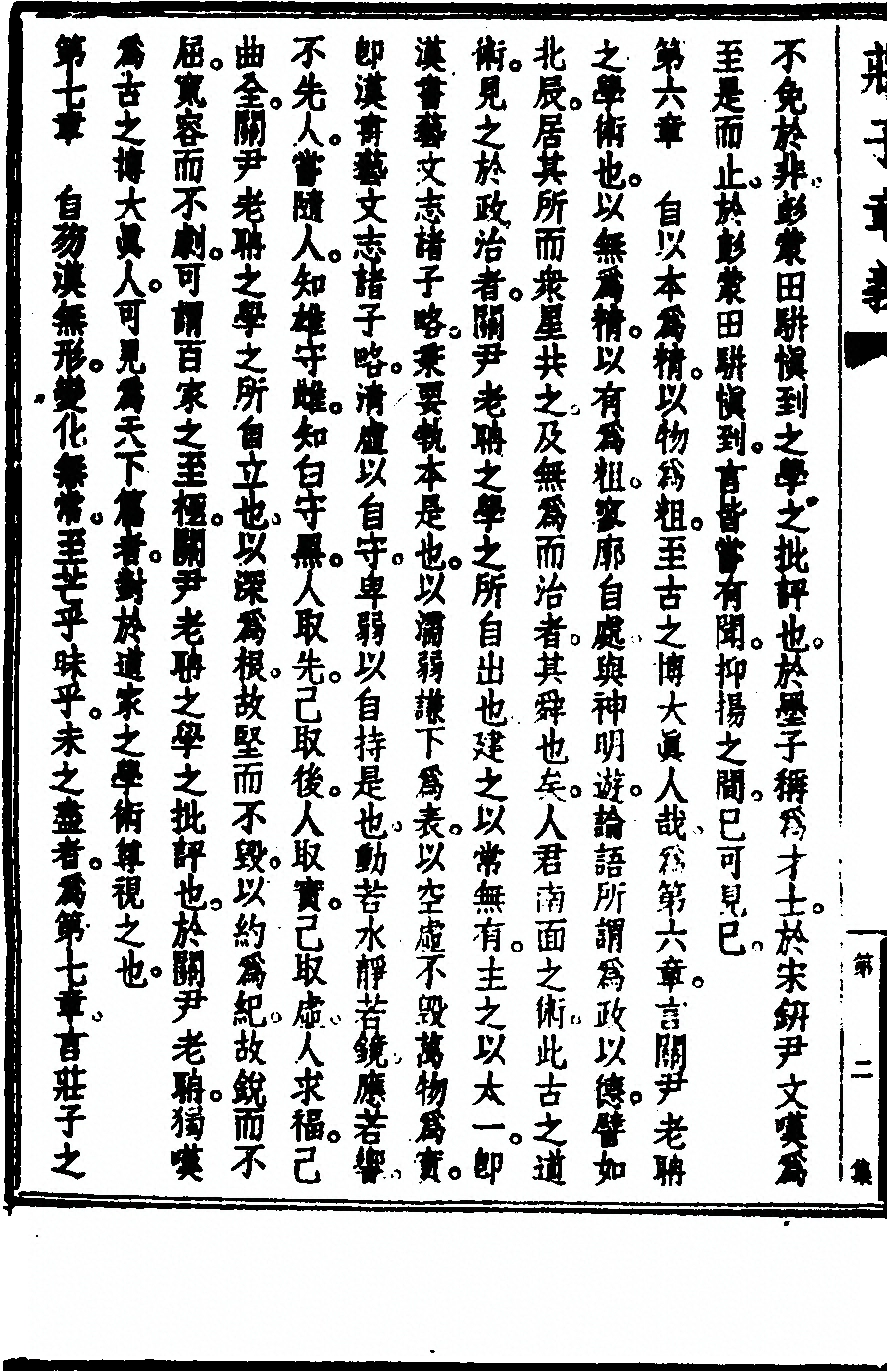 莊子章義
第二集
不免於非。彭蒙田駢愼到之學之批評也。於墨子稱爲才士。於宋鈃尹文嘆爲
至是而止。於彭蒙田駢愼到。言皆嘗有聞。抑揚之間。已可見已。
第六章　自以本爲精。以物爲粗。至古之博大眞人哉。爲第六章。言關尹老聃
之學術也。以無爲精。以有爲粗。寥廓自處。與神明遊。論語所謂爲政以德。譬如
北辰。居其所而衆星共之。及無爲而治者。其舜也矣。人君南面之術。此古之道
術。見之於政治者。關尹老聃之學之所自出也。建之以常無有。主之以太一。卽
漢書藝文志諸子略。秉要執本是也。以濡弱謙下爲表。以空虛不毀萬物爲實。
卽漢書藝文志諸子略。清虛以自守。卑弱以自持是也。動若水靜若鏡。應若響。
不先人。嘗隨人。知雄守雌。知白守黑。人取先。己取後。人取實。己取虛。人求福。己
曲全。關尹老聃之學之所自立也。以深爲根。故堅而不毀。以約爲紀。故銳而不
屈。寬容而不劇。可謂百家之至極。關尹老聃之學之批評也。於關尹老聃。獨嘆
爲古之博大眞人。可見爲天下篇者。對於道家之學術尊視之也。
第七章　自芴漠無形。變化無常。至芒乎昧乎。未之盡者。爲第七章。言莊子之